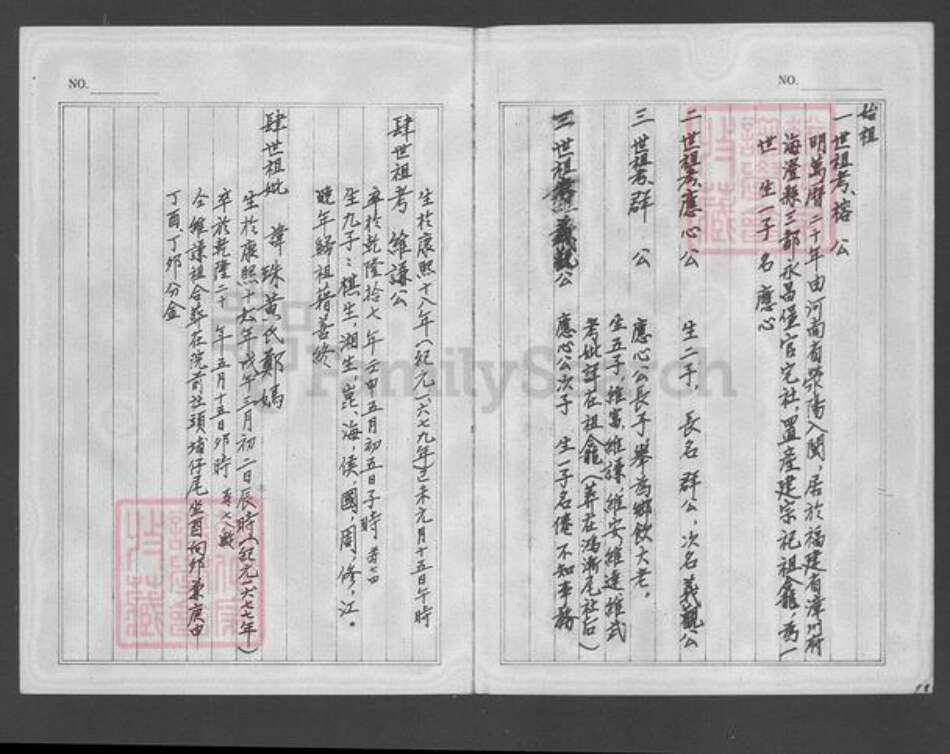 NO.
始祖
一世祖考 榕 公
明萬曆二十年由河南省滎陽入閩,居於福建省漳州府
海澄縣三都永昌堡官宅社,置產建宗祀祖龕,為一
世 生一子名應心
二世祖考應心公 生二子,長名群公,次名義觀公
三世祖考群 公 應心公長子舉為鄉飲大老。
生五子,維富,維謙,維安維達維武
考妣詳在祖龕(葬在鴻漸尾社后)
三世祖考義觀公 應心公次子 生一子名倦不知事務
NO.
肆世祖考 維謙公
生於康熙十八年(紀元一六七九年)己未元月十五日午時
卒於乾隆拾七年壬申五月初五日子時 壽七四
生九子:棋生,湘生,崑,海,侯,國,周,修,江。
晚年歸祖藉善終
肆世祖妣 諱珠黃氏鄭媽
生於康熙十六年戊午三月初二日辰時(紀元一六七七年)
卒於乾隆二十 年五月十五日卯時 壽七八歲
仝維謙祖合葬在院前社頭堵仔尾坐酉向卯兼庚甲
丁酉丁卯分金
FamilySearch